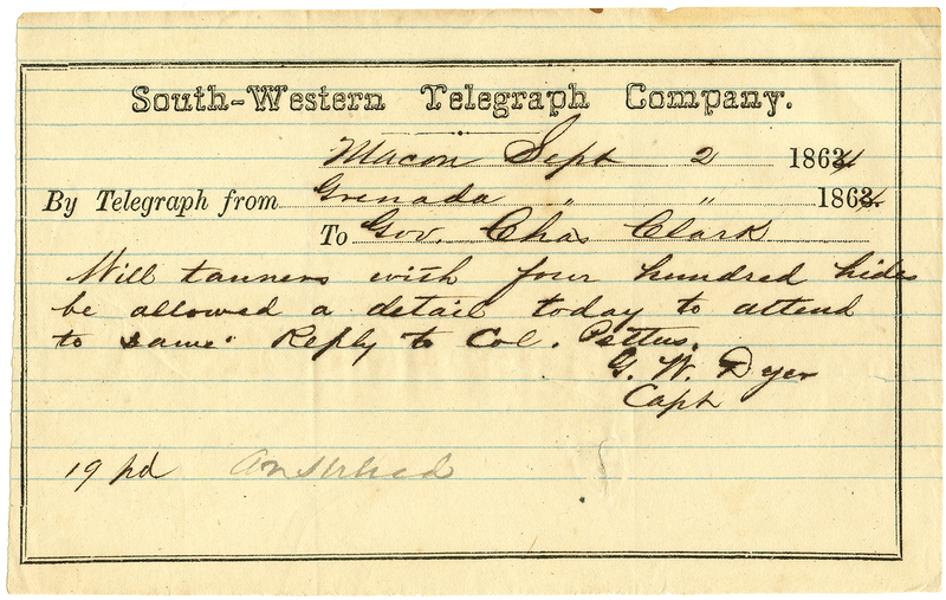 South-Western Telegraph Company.
Macon Sept 2 1864
By Telegraph from Grenada " " 1864.
To Gov. Chas Clark
Will tanners with four hundred hides
be allowed a detail today to attend
to same. Reply to Col. Pettus.
G. W. Dyer
Capt
19 pd Answered